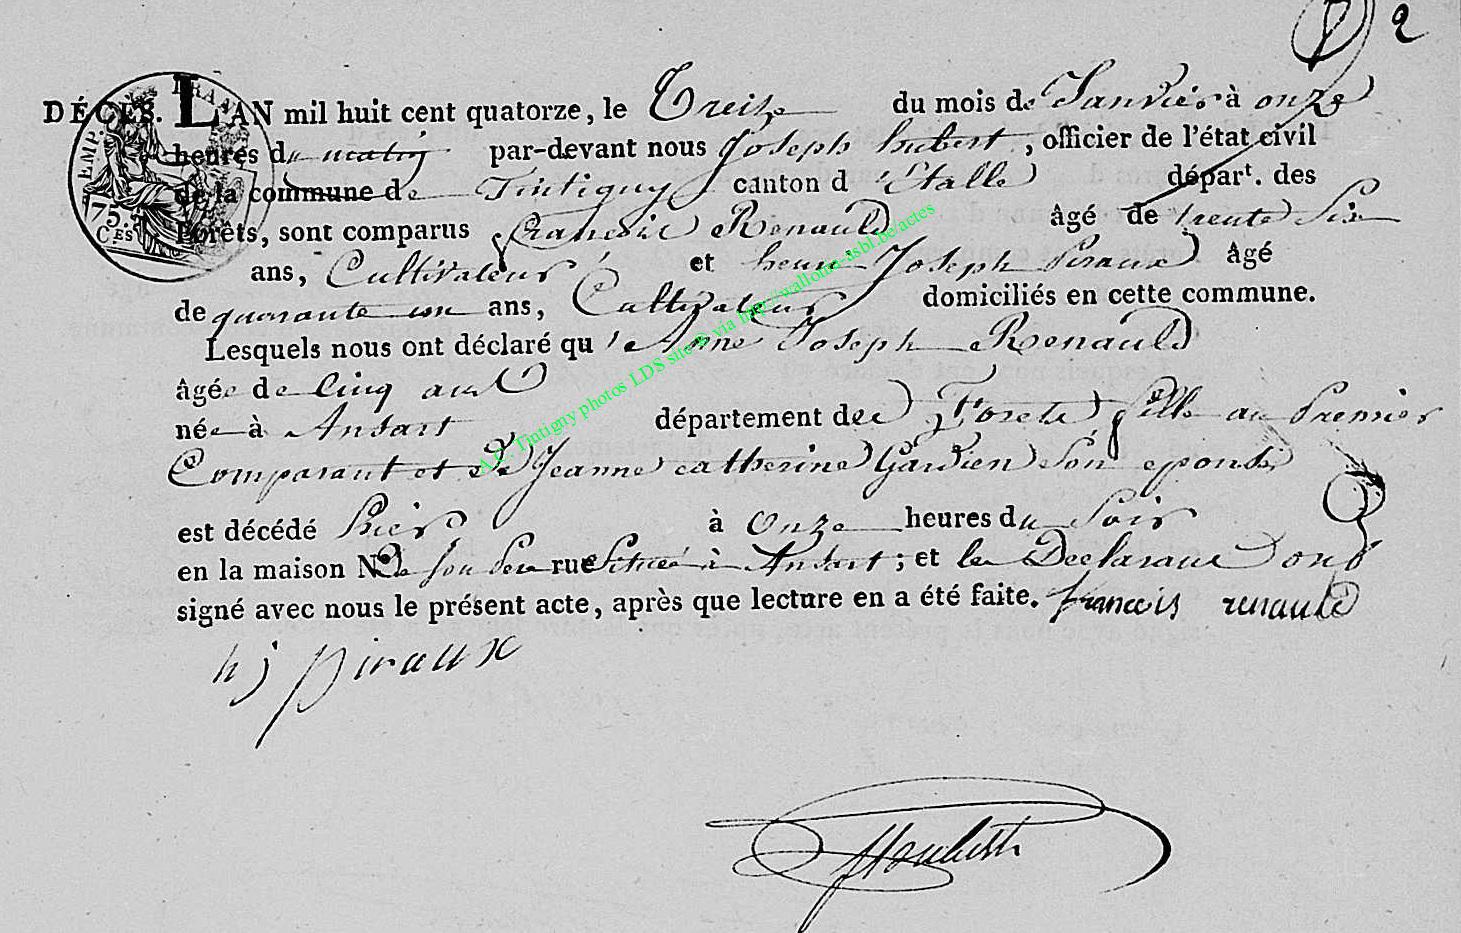 2
DÉCÈS. L'AN mil huit cent quatorze, le Treize du mois de Janvier à onze
heures du matin par-devant nous Joseph hubert, officier de l'état civil
de la commune de Tintigny canton d'Etalleépart. des
Forêts, sont comparus francois Renauld âgé de trente Six
ans, Cultivateur et henri Joseph Piraux âgé
de quarante un ans, Cultivateur domiciliés en cette commune.
Lesquels nous ont déclaré qu'Anne Joseph Renauld
âgée de Cinq ans
née à Ansart département des Forets fille au Premier
Comparant et de Jeanne catherine Gardien Son epouse
est décédé hier à Onze heures du Soir
en la maison de son Pere rue Située à Ansart ; et les Declarans ont
signé avec nous le présent acte, après que lecture en a été faite. francois renauld
hj piraux
JHubert
EMP. FRAN
75. C.ES
A.E. Tintigny photos LDS site © via http://wallonia-asbl.be/actes